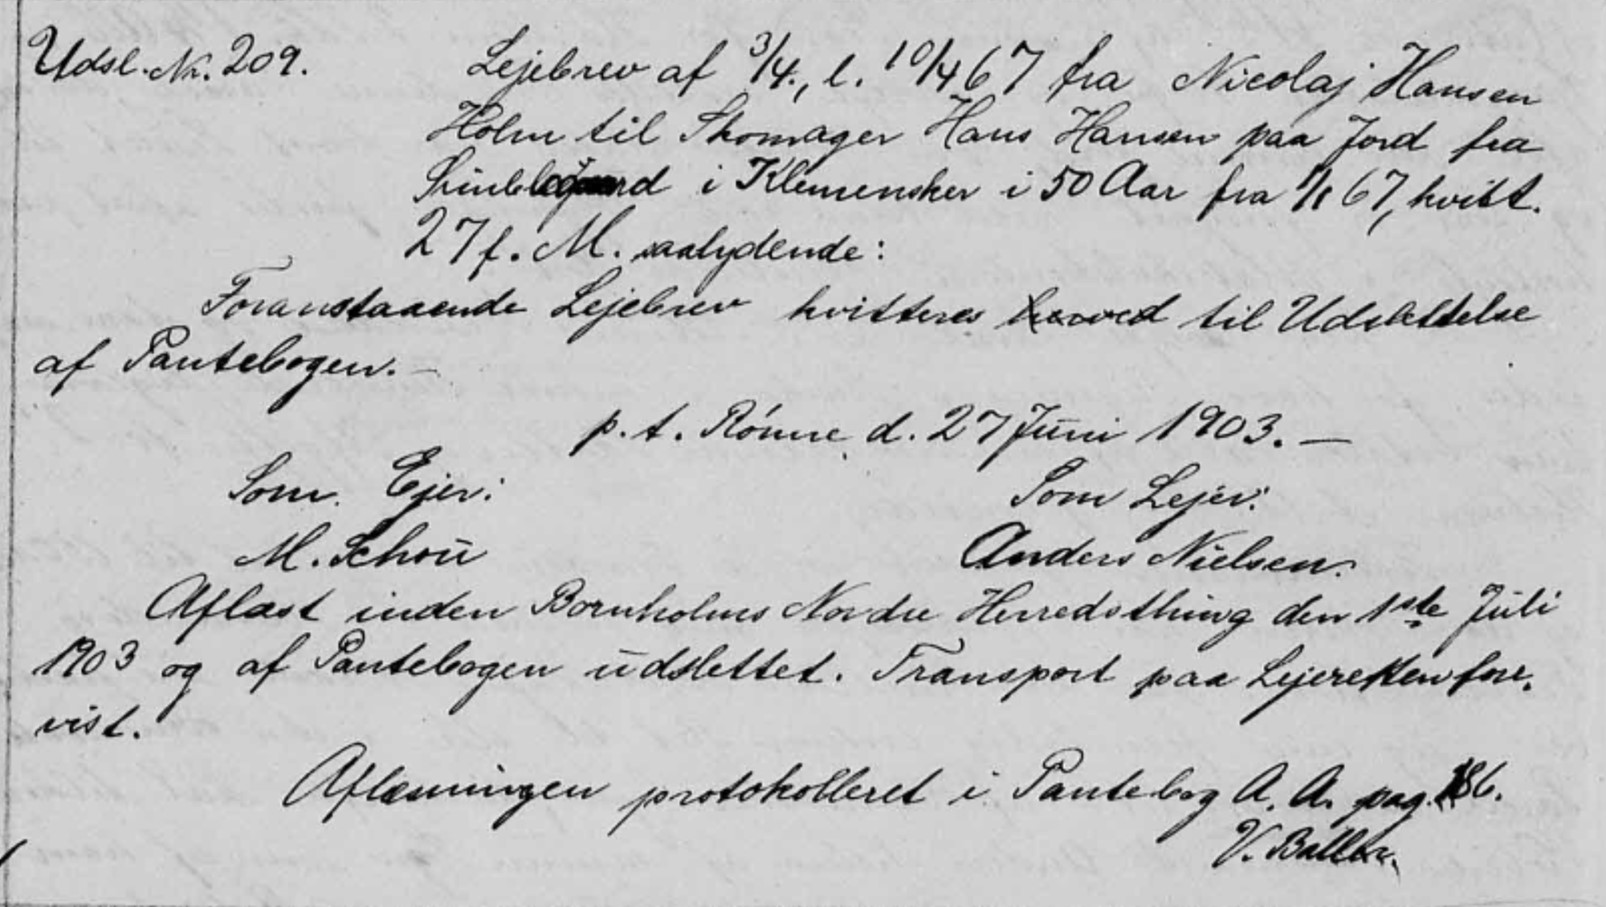 Udsl. Nr. 209. Lejebrev af 3/4., l. 10/4 67 fra Nicolaj Hansen
Holm til Skomager Hans Hansen paa Jord fra
i Klemensker i 50 Aar fra 1/1 67, hvitt.
27 f. M. saalydende:
Foranstaaende Lejebrev kvitteres herved til Udslettelse
af Pantebogen. —
p. t. Rønne d. 27 Juni 1903. —
Som Ejer: Som Lejer:
M. Schou Anders Nielsen.
Aflæst inden Bornholms Nordre Herredsthing den 1ste Juli
1903 og af Pantebogen udslettet. Transport paa Lejeretten fore-
vist.
Aflæsningen protokolleret i Pantebog A. A. pag. 186.